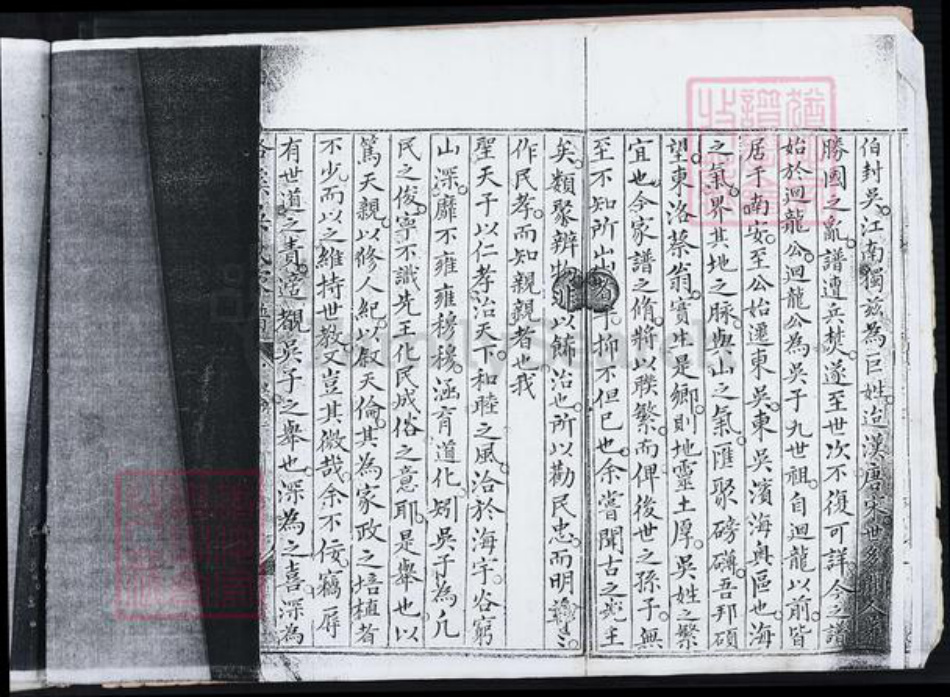 伯封吳。江南獨兹為巨姓。迨漢唐宋世多聞人
勝國之亂。譜遭兵焚。遂至世次不復可詳。今之譜
始於迴龍公。迴龍公為吳于九世祖。自迴龍以前。皆
居于南安。至公始遷東吳。東吳濱海輿區也。海
之氣。界其地之脉。與山之氣。匯聚磅礴。吾邦碩
望。東洛蔡翁。實生是鄉。則地靈土厚。吳姓之繁
宜也。余家譜之脩。將以聨繁。而俾後世之孫子。無
至不知所出。抑不但已也。余嘗聞古之先王
矣。類聚辨物。以飾治也。所以勸民忠。而明
作民孝。而知親親者也我
聖天子以仁孝治天下。和睦之風。洽於海宇。谷窮
山深。靡不雍雍穆穆。涵育道化。矧吳子為凢
民之俊。寧不識先王化民成俗之意耶。是舉也。以
篤天親。以修人紀。以叙天倫。其為家政之培植者
不少。而以之維持世教。又豈其微哉。余不佞。竊辱
有世道之責。適覩吳子之舉也。深為之喜。深為